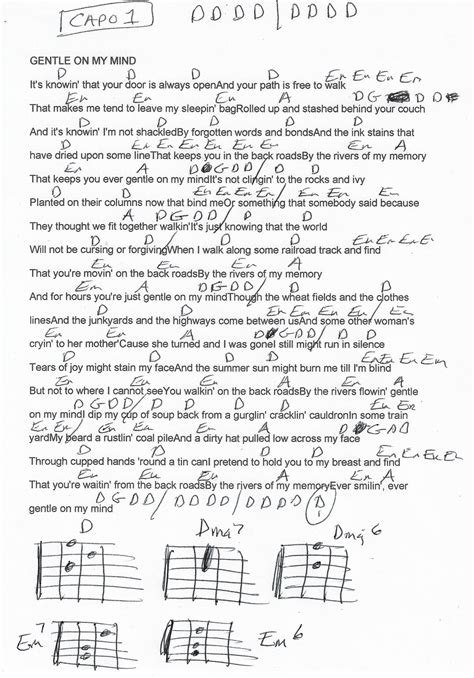 CAPO 1 D D D D | D D D D
GENTLE ON MY MIND
D D D D Em Em Em Em
It's knowin' that your door is always openAnd your path is free to walk
Em Em Em A D G D D
That makes me tend to leave my sleepin' bagRolled up and stashed behind your couch
D D D D
And it's knowin' I'm not shackledBy forgotten words and bondsAnd the ink stains that
Em Em Em Em Em Em
have dried upon some lineThat keeps you in the back roadsBy the rivers of my memory
Em A D G D D / D
That keeps you ever gentle on my mindIt's not clingin' to the rocks and ivy
D D Em Em Em Em / Em Em
Planted on their columns now that bind meOr something that somebody said because
A D G D D / D D
They thought we fit together walkin'It's just knowing that the world
D D Em Em Em Em
Will not be cursing or forgivingWhen I walk along some railroad track and find
Em Em Em
That you're movin' on the back roadsBy the rivers of my memory
Em A D G D D / D D
And for hours you're just gentle on my mindThough the wheat fields and the clothes
D D Em Em Em Em / Em
linesAnd the junkyards and the highways come between usAnd some other woman's
Em Em A D G D D / D
cryin' to her mother'Cause she turned and I was goneI still might run in silence
D D D Em Em Em Em
Tears of joy might stain my faceAnd the summer sun might burn me till I'm blind
Em Em Em A
But not to where I cannot seeYou walkin' on the back roadsBy the rivers flowin' gentle
D G D D / D D D D Em Em
on my mindI dip my cup of soup back from a gurglin' cracklin' cauldronIn some train
Em Em Em Em Em A D G D D
yardMy beard a rustlin' coal pileAnd a dirty hat pulled low across my face
D D D D Em Em Em Em
Through cupped hands 'round a tin canI pretend to hold you to my breast and find
Em Em Em A
That you're waitin' from the back roadsBy the rivers of my memoryEver smilin', ever
D G D D / D D D D / D D D D / D
gentle on my mind
D Dmaj7 Dmaj6
Em7 Em6